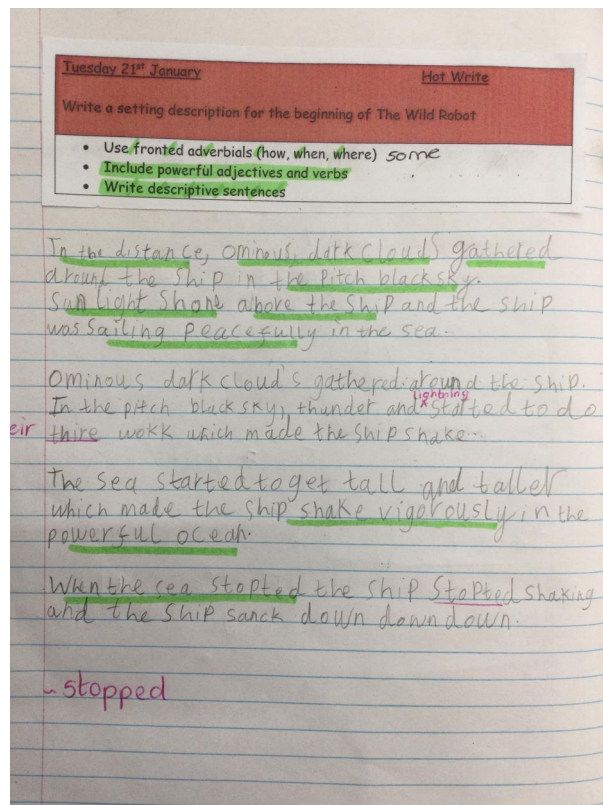 Tuesday 21st January Hot Write
Write a setting description for the beginning of The Wild Robot
• Use fronted adverbials (how, when, where) some
• Include powerful adjectives and verbs
• Write descriptive sentences
In the distance, ominous, dark clouds gathered
around the ship in the pitch black sky.
Sun light shone above the ship and the ship
was sailing peacefully in the sea.
Ominous dark cloud's gathered around the ship.
lightning
In the pitch black sky, thunder and started to do
eir thire wokk which made the ship shake.
The sea started to get tall and taller
which made the ship shake vigorously, in the
powerful ocean.
When the sea stopted the ship stopted shaking
and the ship sanck down down down.
stopped